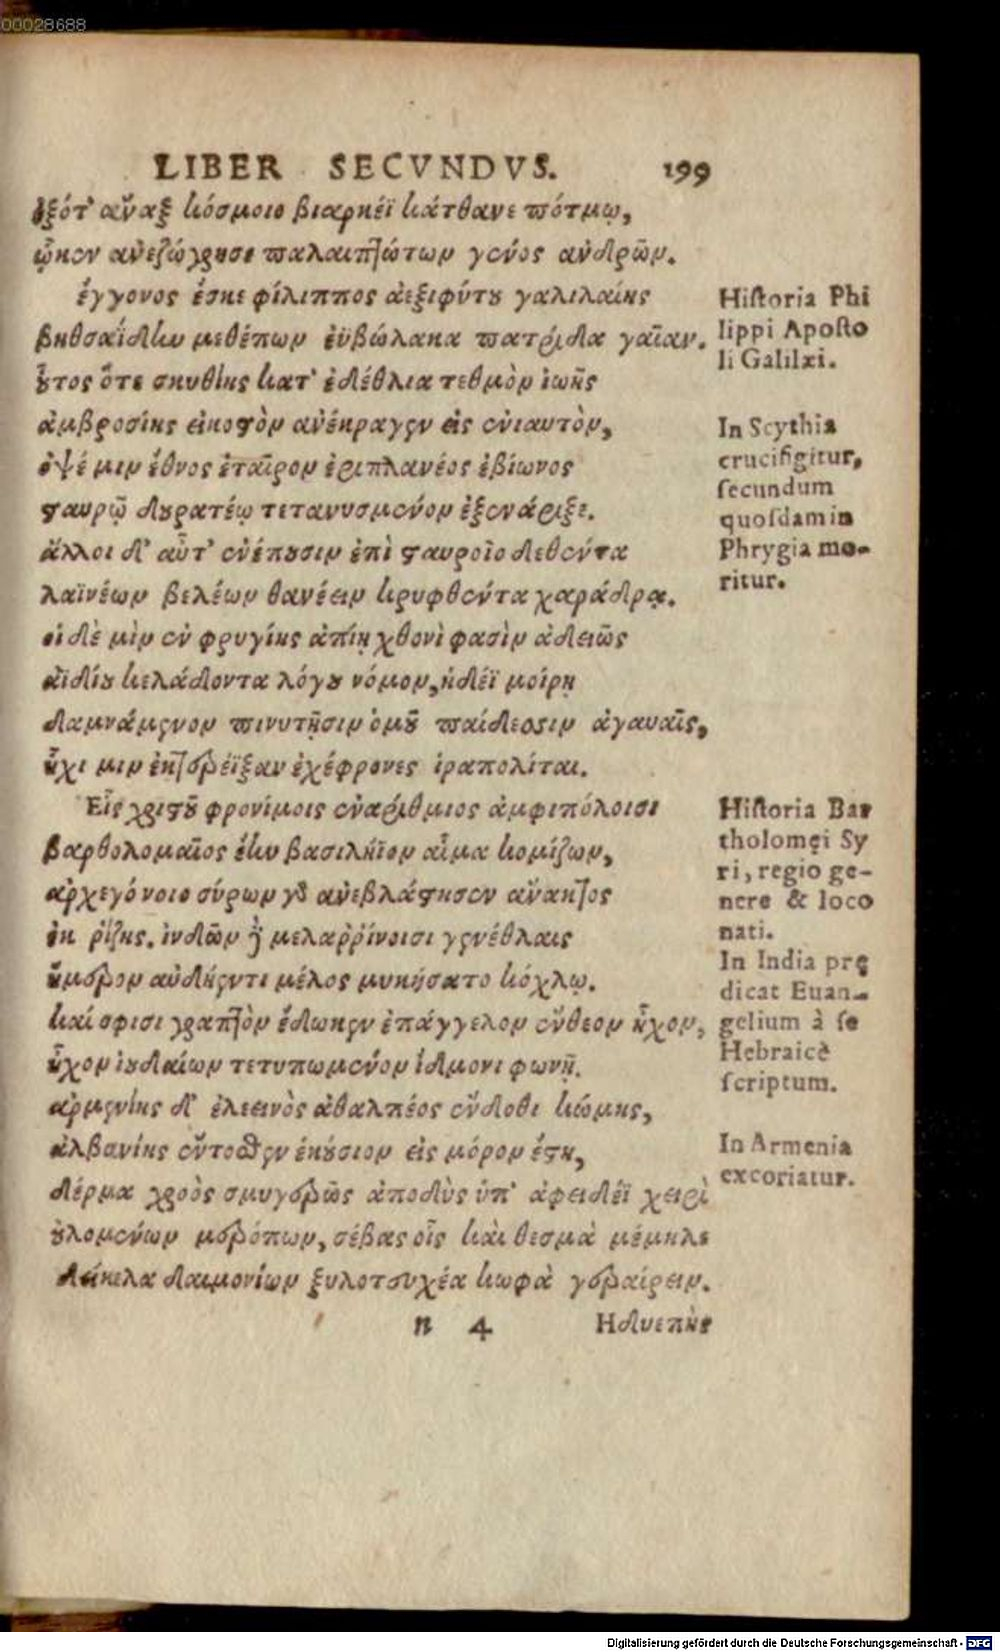 00028688
LIBER SECVNDVS. 199
ἐξότ' αὖαξ κόσμοιο βιαρκέϊ κάτθανε πότμῳ,
ᾤκουν ἀνεζώγρησε παλαιπλώτων γένος ἀνδρῶν.
ἔγγονος ἔσκε φίλιππος ἀεξιφύτου γαλιλαίης
βηθσαΐδην μεθέπων ἐϋβώλακα πατρίδα γαῖαν.
οὗτος ὅτε σκυθίης κατ' ἐδέθλια τεθμὸν ἰωῆς
ἀμβροσίης εἰκοστὸν ἀνέκραγεν εἰς ἐνιαυτὸν,
ὀψέ μιν ἔθνος ἑταῖρον ἐριπλανέος ἐβίωνος
σταυρῷ δουρατέῳ τετανυσμένον ἐξενάριξε.
ἄλλοι δ' αὖτ' ἐνέπουσιν ἐπὶ σταυροῖο δεθέντα
λαϊνέων βελέων θανέειν κρυφθέντα χαράδρᾳ.
οἱ δὲ μὶν ἐν φρυγίης ἀπίῃ χθονὶ φασὶν ἀδειῶς
ἀϊδίου κελάδοντα λόγου νόμον, ἡδέϊ μοίρῃ
δαμνάμενον πινυτῇσιν ὁμοῦ παίδεσσιν ἀγαυαῖς,
ἧχι μιν ἐκτερέϊξαν ἐχέφρονες ἱραπολίται.
Εἷς χριστοῦ φρονίμοις ἐναρίθμιος ἀμφιπόλοισι
βαρθολομαῖος ἔην βασιλήϊον αἷμα κομίζων,
ἀρχεγόνοιο σύρων γὸ ἀνεβλάστησεν ἄνακτος
ἐκ ῥίζης. ἰνδῶν ἢ μελαῤῥίνοισι γενέθλαις
ἥμερον αὐδήεντι μέλος μυκήσατο κόχλῳ.
καί σφισι γραπτὸν ἔδωκεν ἐπάγγελον ἔνθεον ἦχον,
ἦχον ἰουδαίων τετυπωμένον ἴδμονι φωνῇ.
ἀρμενίης δ' ἐλεεινὸς ἀθαλπέος ἔνδοθι κώμης,
ἀλβανίης ἔντοσθεν ἑκούσιον εἰς μόρον ἔστη,
δέρμα χροὸς σμυγερῶς ἀποδὺς ὑπ' ἀφειδέϊ χειρὶ
οὐλομένων μερόπων, σέβας οἷς καὶ θεσμὰ μέμηλε
δείκελα δαιμονίων ξυλοτευχέα κωφὰ γεραίρειν.
n 4 Ηδυεπὴς
Historia Phi
lippi Aposto
li Galilæi.
In Scythia
crucifigitur,
secundum
quosdam in
Phrygia mo-
ritur.
Historia Bar
tholomęi Sy
ri, regio ge-
nere & loco
nati.
In India prę
dicat Euan-
gelium à se
Hebraicè
scriptum.
In Armenia
excoriatur.
Digitalisierung gefördert durch die Deutsche Forschungsgemeinschaft - DFG